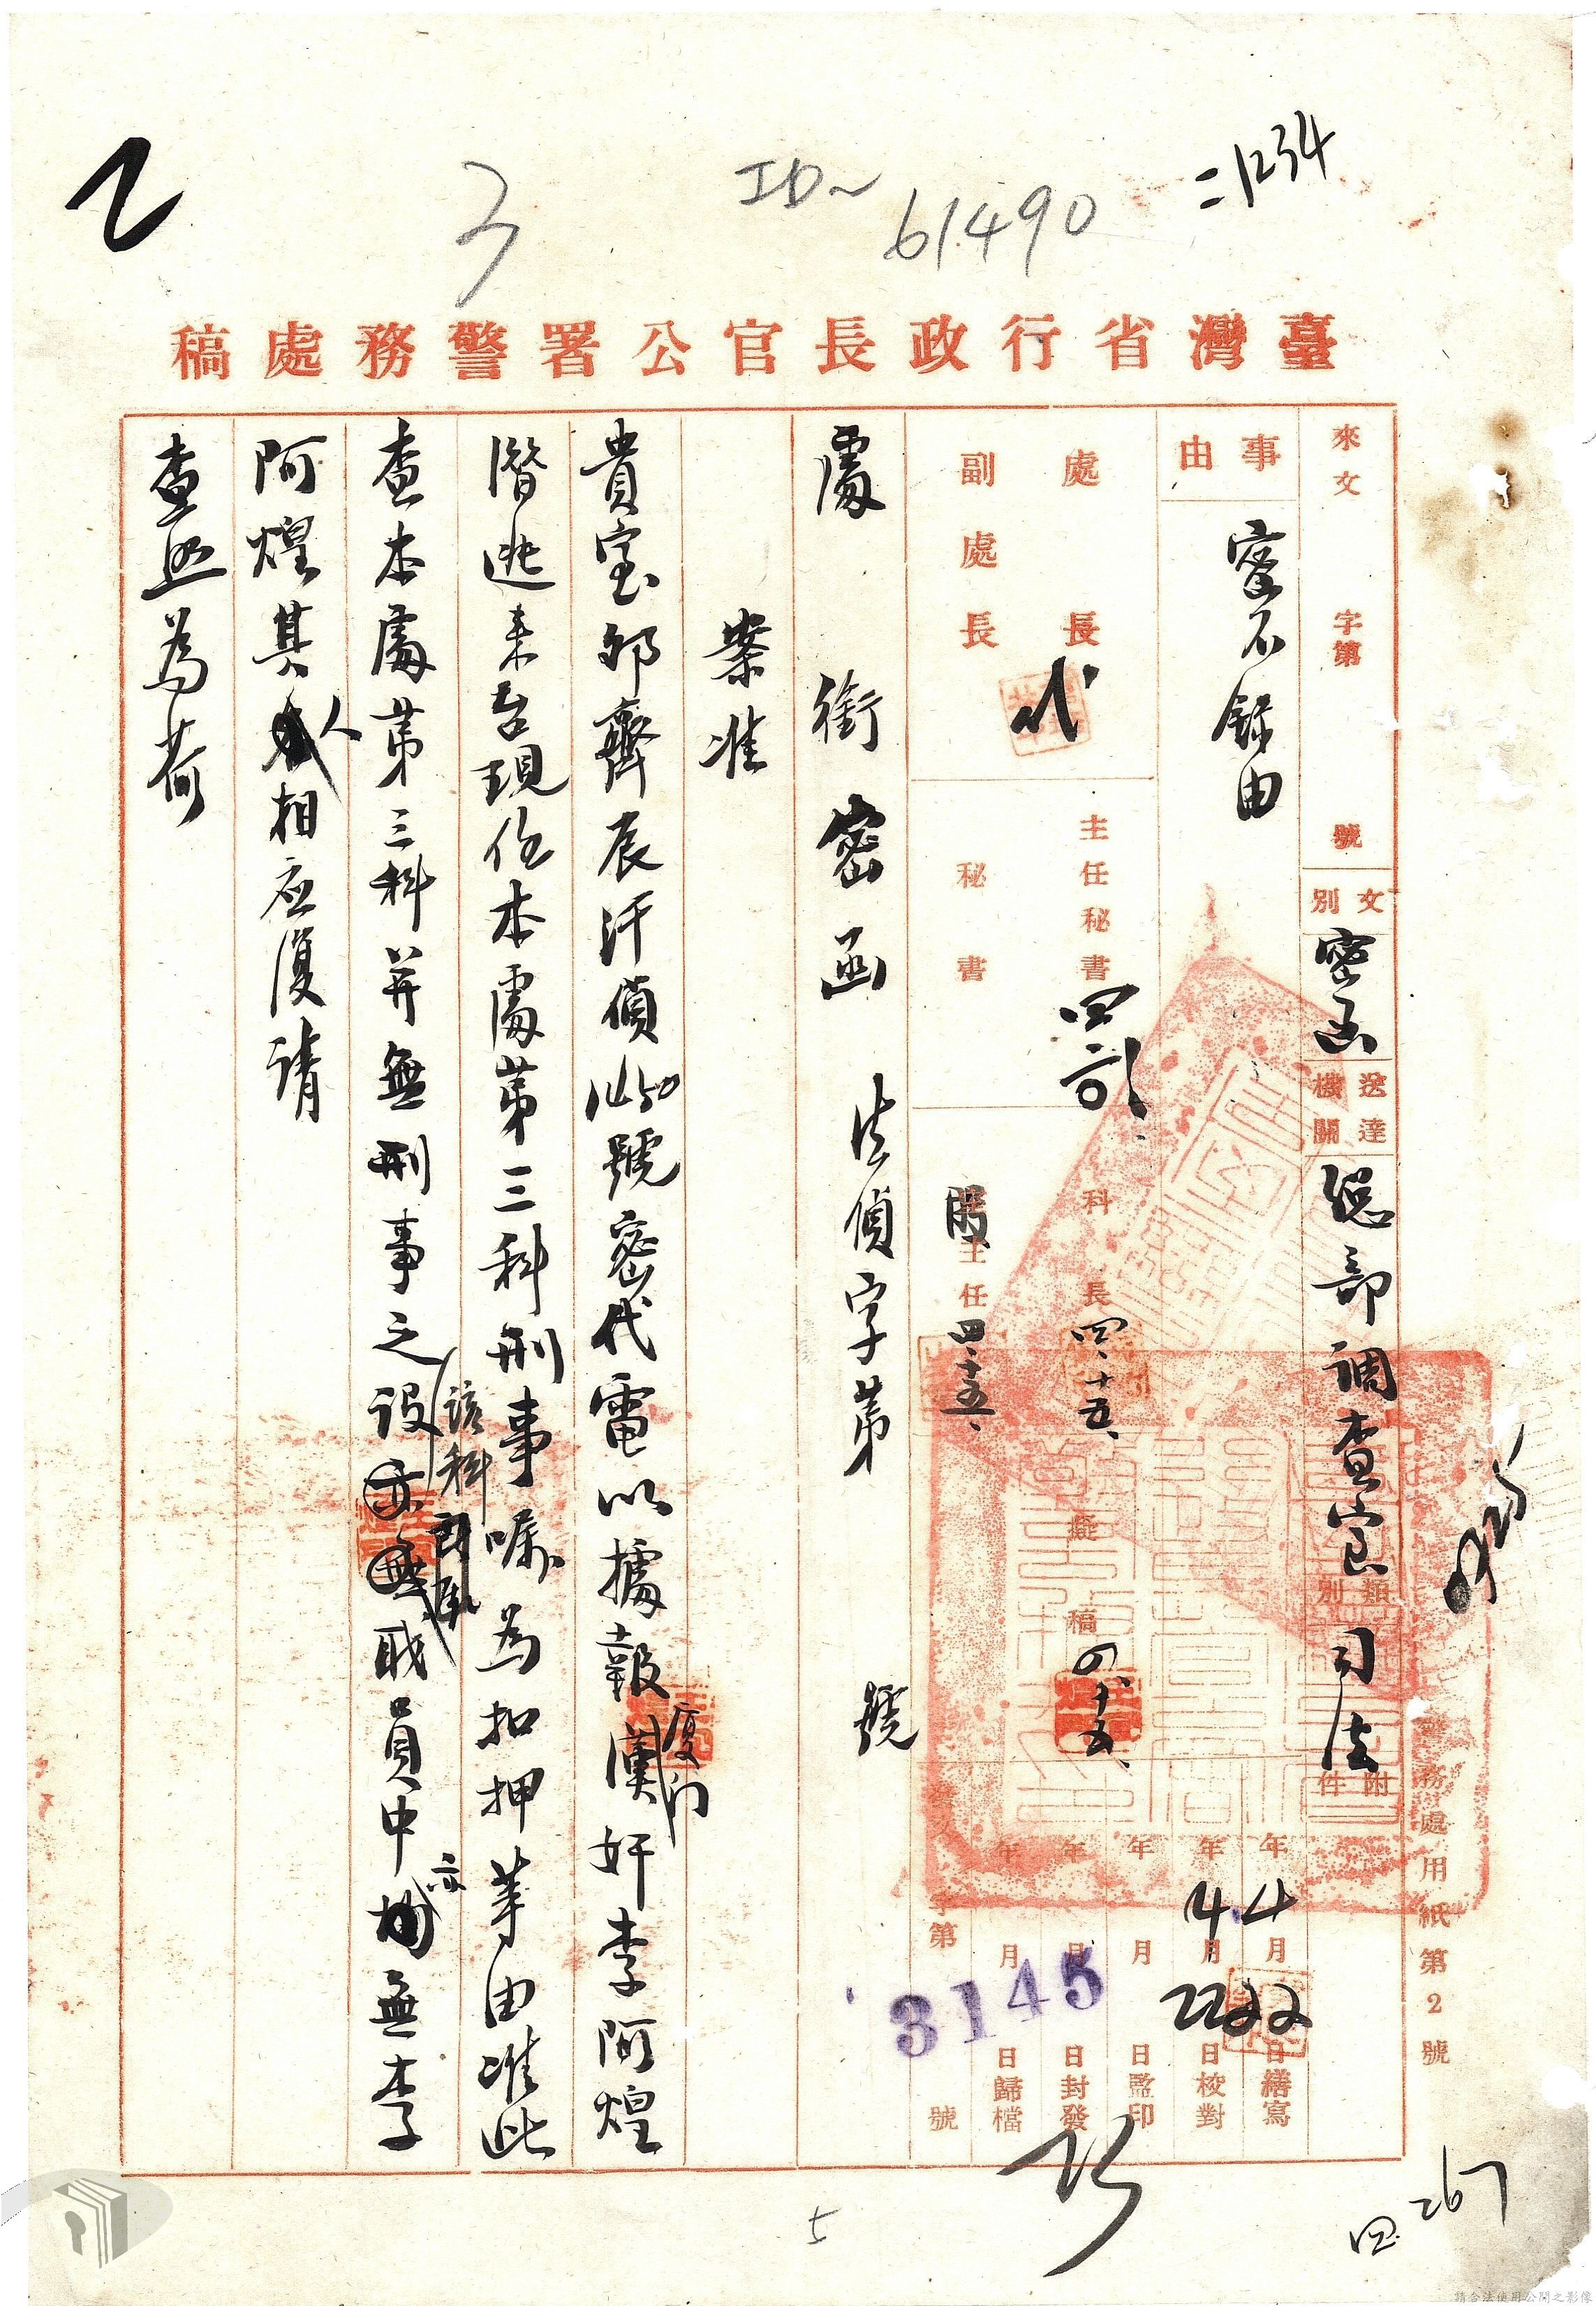 乙
3
ID~
61490
二1234
臺灣省行政長官公署警務處稿
來文 字第 號
文別
密函
送達機關
總部調查室 司法
類別
附件
事由
密不錄由
處長
代
副處長
主任秘書
秘書
科長
四、十五、
股主任
四、十五、
擬稿
四、十五、
年 月 日繕寫
4 22
年 月 日校對
4 22
年 月 日監印
年 月 日封發
年 月 日歸檔
字第 號
3145
處銜密函 法偵字第 號
案准
貴室卯齊辰汗偵 號密代電以據報廈门漢奸李阿煌
潛逃來台現任本處第三科刑事囑為扣押等由准此
查本處第三科并無刑事之設該科 亦無職員中亦無李
阿煌其人相应復请
查照為荷
務處用紙第2號
5
四
267
請合法使用公開之影像